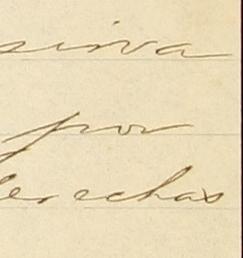 sirva
por
derechas